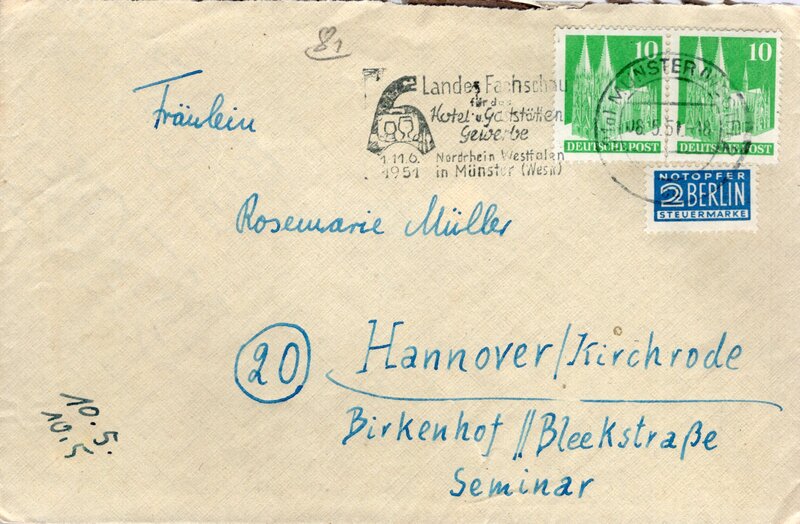 81
Landes Fachschau
für das
Hotel- u. Gaststätten
Gewerbe
1.-11.6. Nordrhein Westfalen
1951 in Münster (Westf)
10
10
DEUTSCHE POST
DEUTSCHE POST
MÜNSTER (WESTF)
08.5.51-18
NOTOPFER
2 BERLIN
STEUERMARKE
Fräulein
Rosemarie Müller
20 Hannover/Kirchrode
Birkenhof // Bleekstraße
Seminar
10.5.
10.5